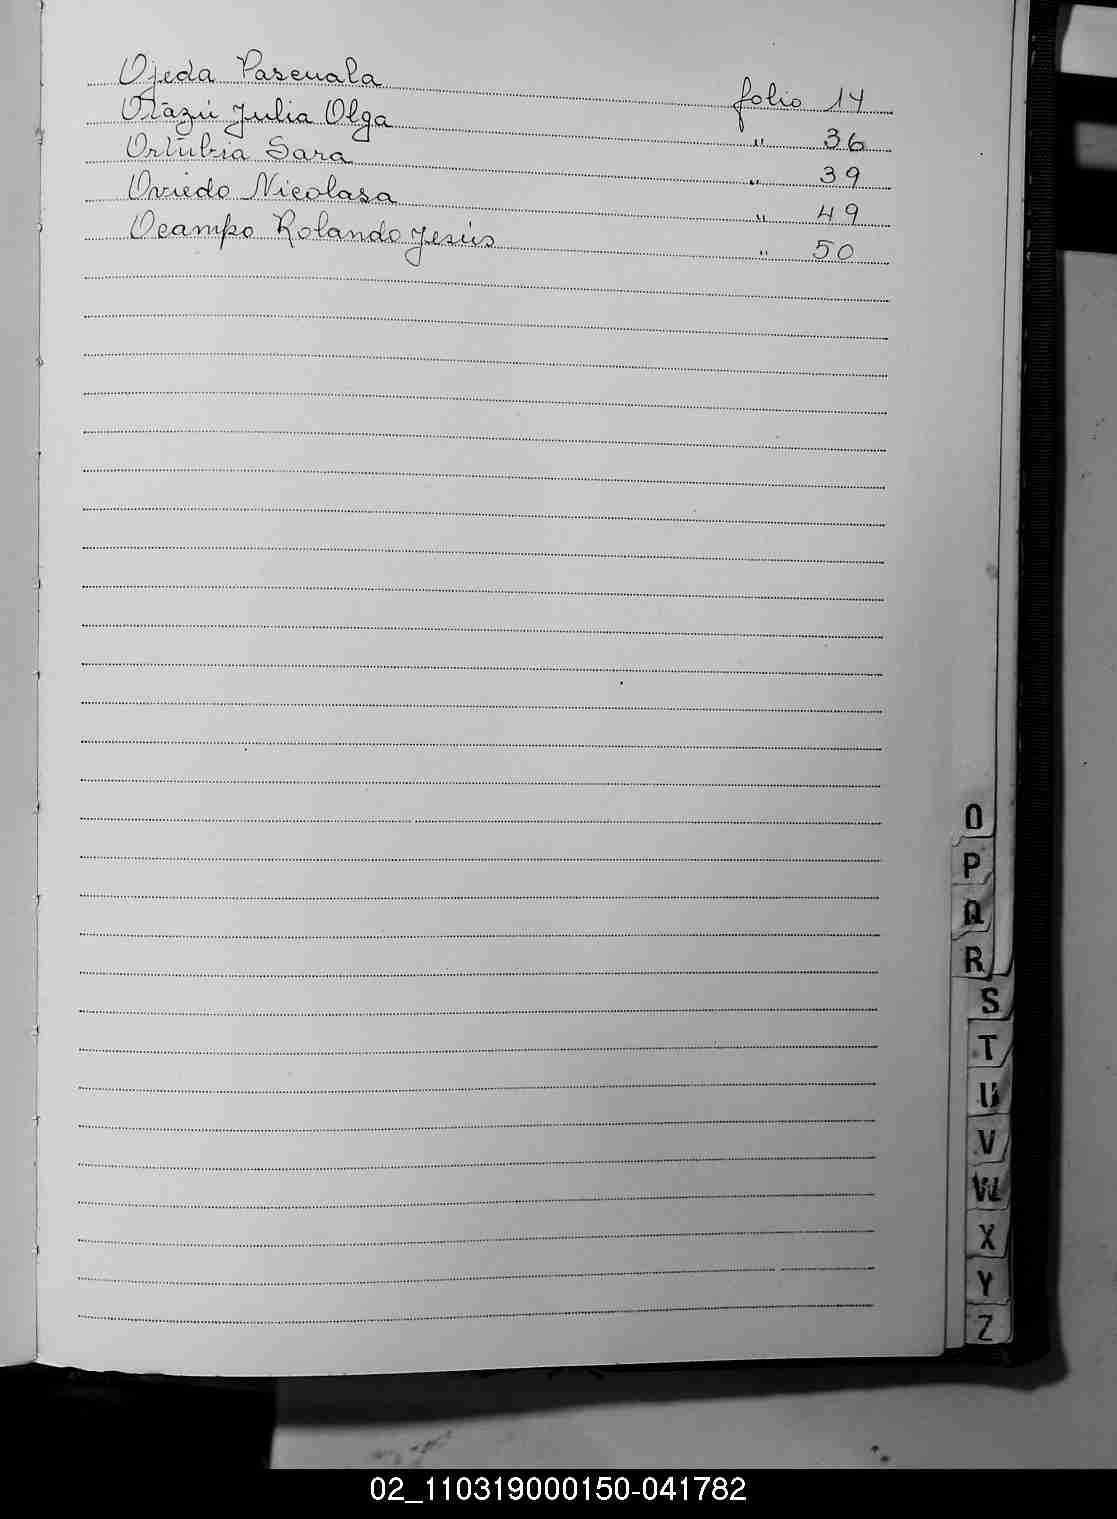 Ojeda Pascuala folio 14
Otazú Julia Olga " 36
Ortubia Sara " 39
Oviedo Nicolasa " 49
Ocampo Rolando Jesús " 50
O
P
Q
R
S
T
U
V
W
X
Y
Z
02_110319000150-041782